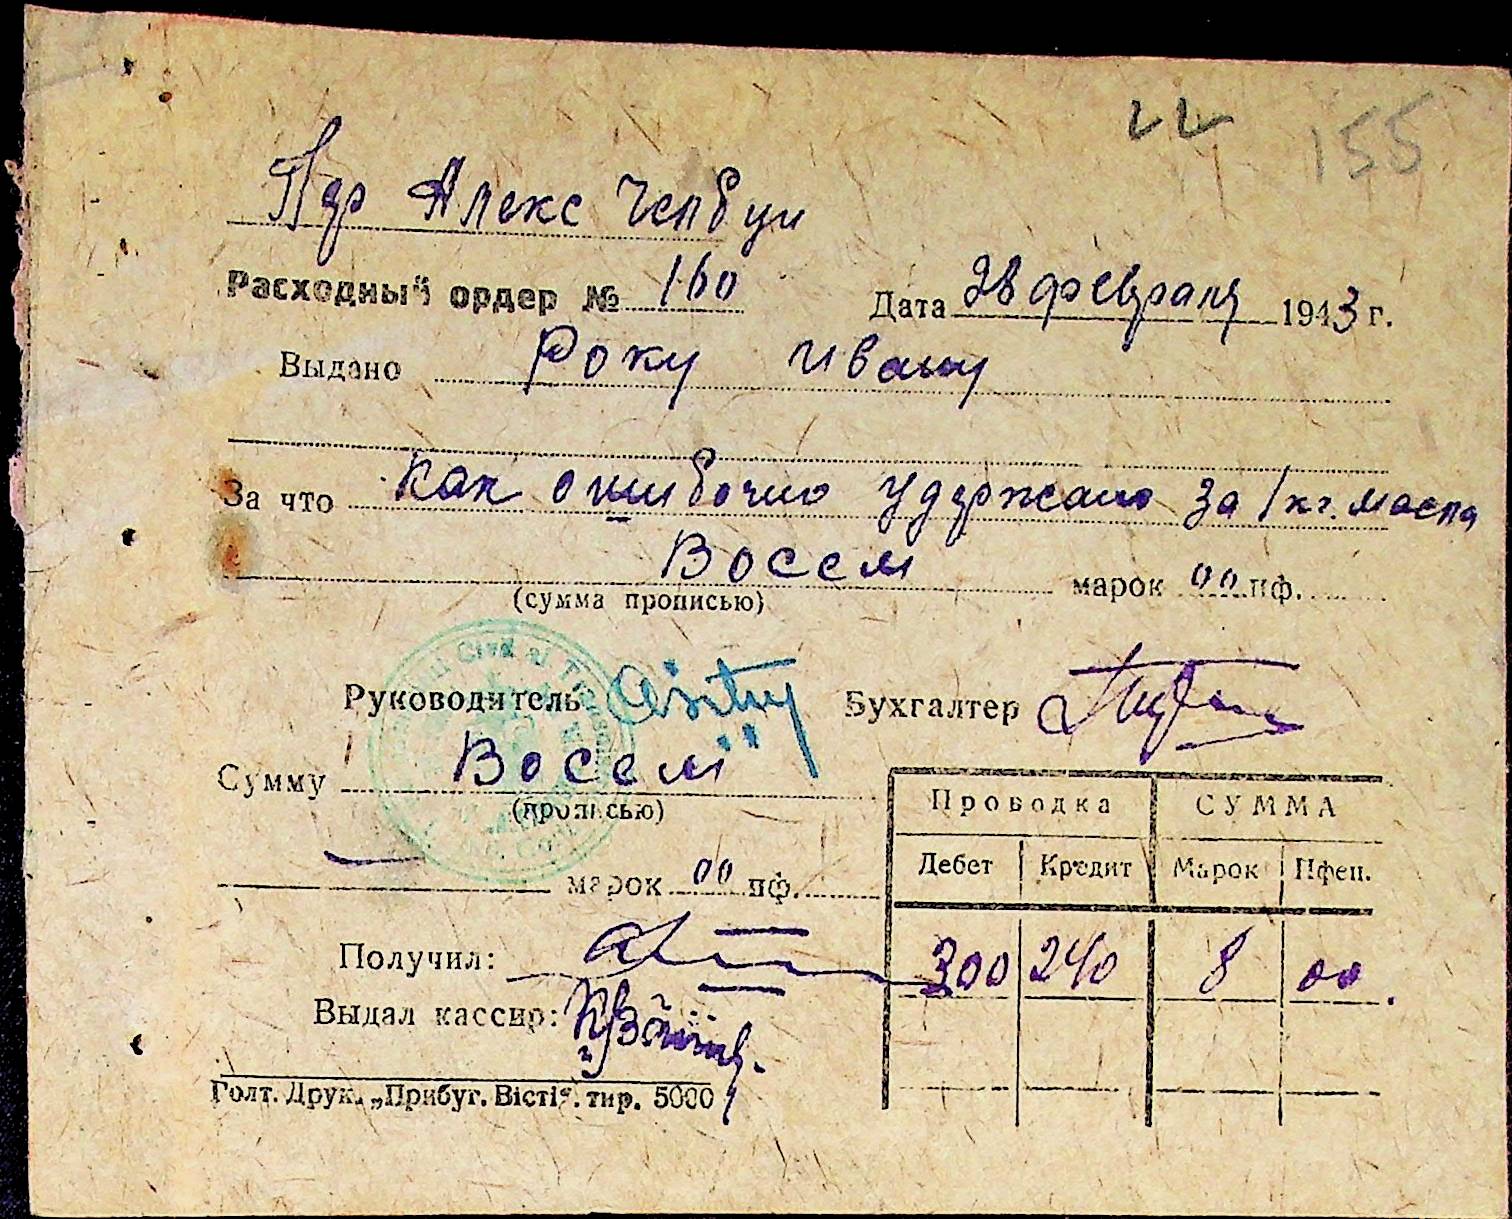 22 155
Пдр Алекс
Расходный ордер № 160 Дата 28 февраля 1943 г.
Выдано Року Ивану
За что Как ошибочно удержано за 1 кг. масла
Восем марок 00 пф.
(сумма прописью)
Руководитель Бухгалтер
Сумму Восем
(прописью)
марок 00 пф.
Проводка СУММА
Дебет Кредит Марок Пфен.
300 240 8 00
Получил:
Выдал кассир:
Голт. Друк. „Прибуг. Вісті“. тир. 5000